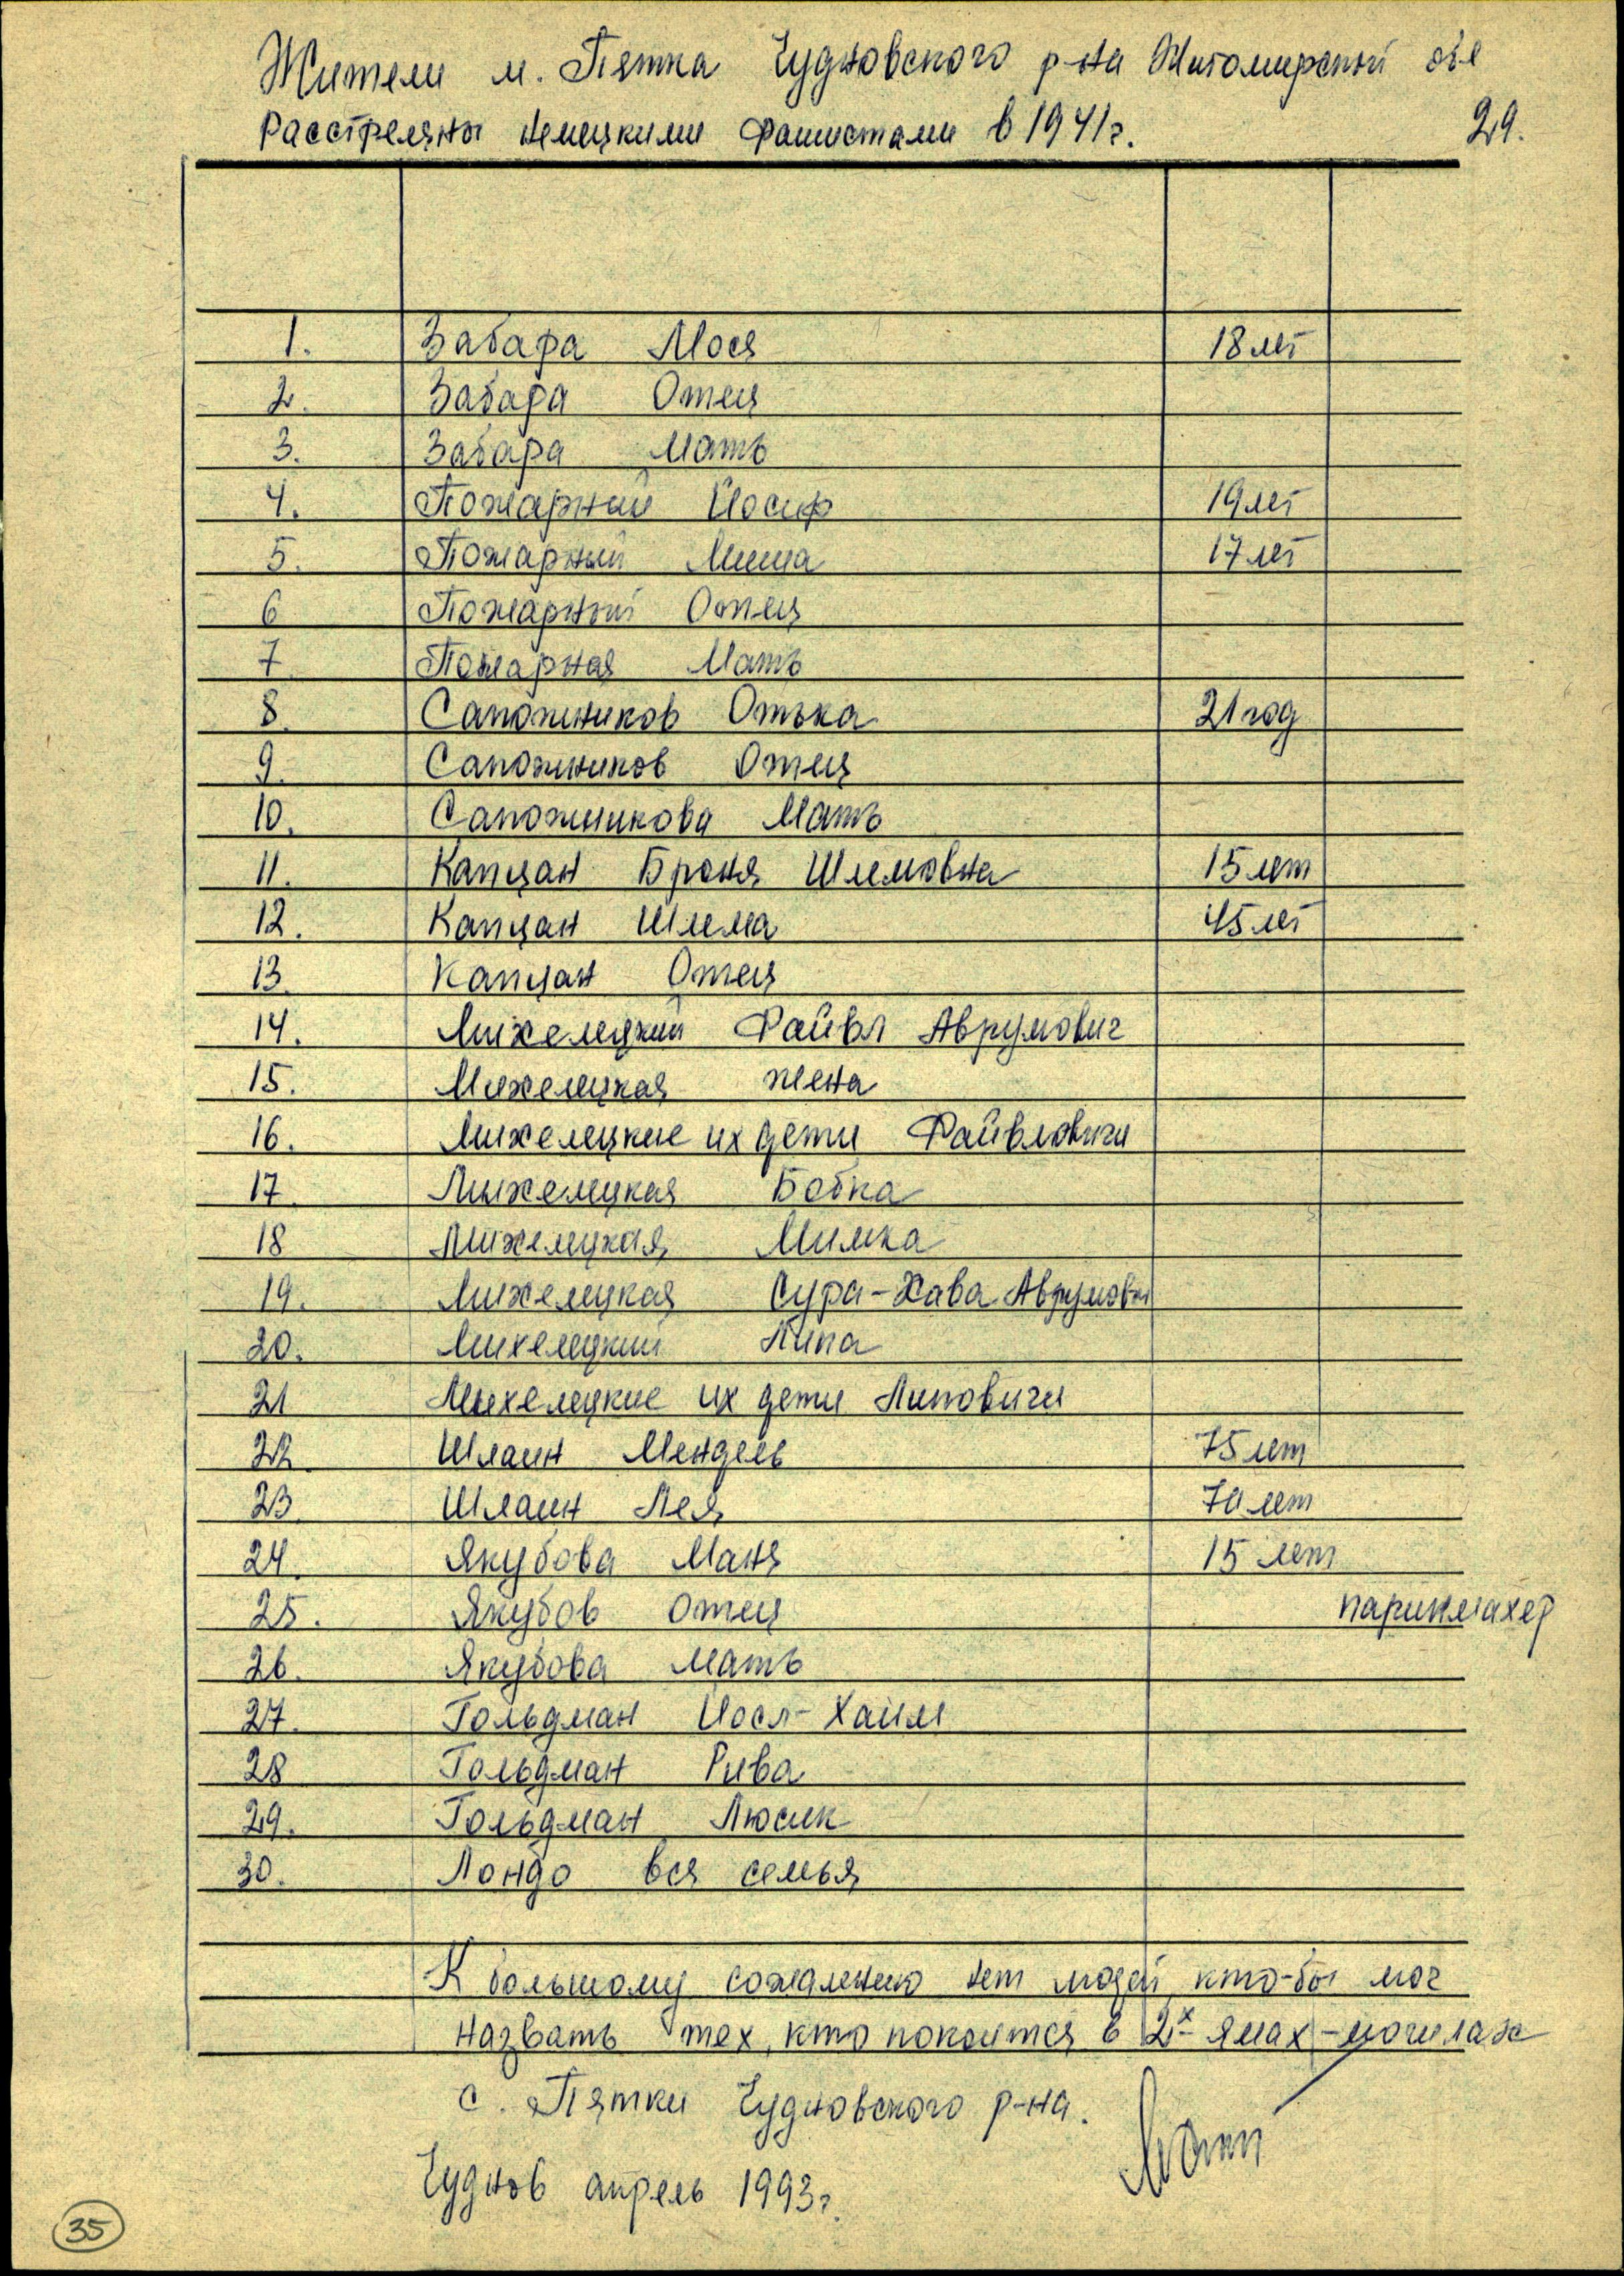 Жители м. Пятка Чудновского р-на Житомирской обл
Расстреляны немецкими фашистами в 1941г.
29.
1. Забара Мося 18 лет
2. Забара Отец
3. Забара Мать
4. Пожарный Йосиф 19 лет
5. Пожарный Миша 17 лет
6 Пожарный Отец
7 Пожарная Мать
8. Сапожников Отька 21 год
9. Сапожников Отец
10. Сапожникова Мать
11. Капцан Броня Шлемовна 15 лет
12. Капцан Шлема 45 лет
13. Капцан Отец
14. Михелецкий Файвл Аврумович
15. Михелецкая жена
16. Михелецкие их дети Файвловичи
17. Михелецкая Бобка
18 Михелецкая Милка
19. Михелецкая Сура-Хава Аврумовн
20. Михелецкий Липа
21 Михелецкие их дети Липовичи
22. Шлаин Мендель 75 лет
23. Шлаин Лея 70 лет
24. Якубова Маня 15 лет
25. Якубов Отец парикмахер
26. Якубова Мать
27. Гольдман Иосл-Хаим
28 Гольдман Рива
29. Гольдман Люсик
30. Лондо вся семья
К большому сожалению нет людей, кто-бы мог
назвать тех, кто покоится в 2х ямах-могилах
с. Пятки Чудновского р-на.
Чуднов апрель 1993г.
35